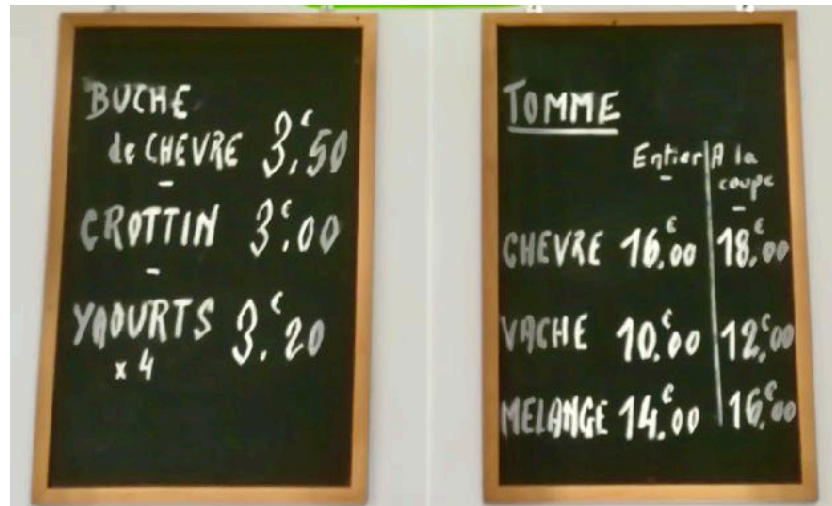 BUCHE
de CHEVRE 3,€50
-
CROTTIN 3,€00
-
YAOURTS 3,€20
x 4
TOMME
Entier A la
coupe
CHEVRE 16,€00 18,€00
VACHE 10,€00 12,€00
MELANGE 14,€00 16,€00